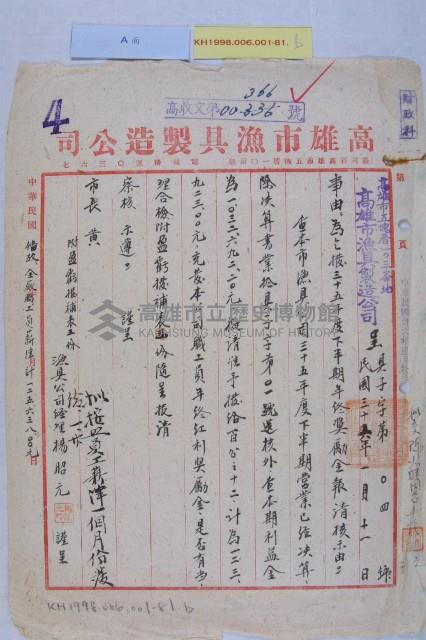 A面
KH1998.006.001-81.b
366
高收文第00336號
財政科
4
高雄市漁具製造公司
高雄市漁具製造公司
呈 具子字第一〇四號
民國三十六年一月十一日
事由：為乞撥三十五年度下半期年終獎勵金報請核示由
查本市漁具公司三十五年度下半期營業已經決算，
除決算書業於具子字第〇一號送核外查本期利益金
為一〇三二六九二.二〇元，擬請准予撥給百分之十二計為一二三、
九二三.〇〇元，充獎本公司職工員年終紅利獎勵金，是否有當，
理合檢附盈虧撥補表五份隨呈報請
察核 示遵 謹呈
市長 黃
附盈虧撥補表五份
漁具公司經理楊昭元 謹呈
擬按照員工薪津一個月份發
給
中華民國
高雄市立歷史博物館
KAOHSIUNG MUSEUM OF HISTORY
KH1998.006.001-81.b